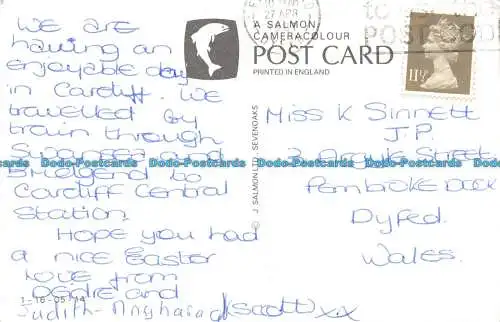 We are
having an
enjoyable day
in Cardiff. We
travelled by
train through
Swansea and
Bridgend to
Cardiff Central
Station.
Hope you had
a nice Easter
Love from
Deidre and
Judith-Angharad (Scott) xx
1-16-05-14
A SALMON
CAMERACOLOUR
POST CARD
PRINTED IN ENGLAND
J. SALMON LTD. SEVENOAKS
27 APR
POSTCODE
11½P
Miss K Sinnett
J.P.
Street
Pembroke Dock
Dyfed.
Wales.
Dodo-Postcards Dodo-Postcards Dodo-Postcards Dodo-Postcards Dodo-Postcards